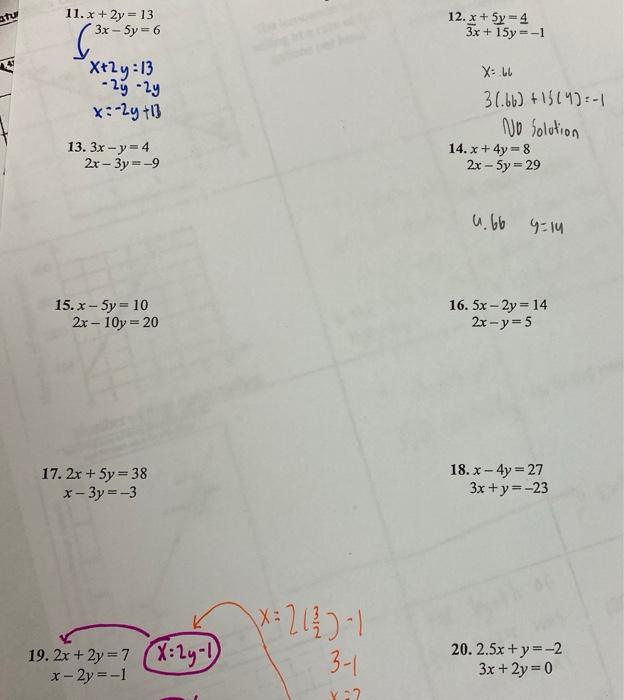 11. x + 2y = 13
3x – 5y = 6
x+2y=13
-2y -2y
x=-2y+13
12. x + 5y = 4
3x + 15y = –1
x=.66
3(.66) + 15(4)=-1
No Solution
13. 3x – y = 4
2x – 3y = –9
14. x + 4y = 8
2x – 5y = 29
4.66 y=14
15. x – 5y = 10
2x – 10y = 20
16. 5x – 2y = 14
2x – y = 5
17. 2x + 5y = 38
x – 3y = –3
18. x – 4y = 27
3x + y = –23
x=2(3/2)-1
3-1
x=2
19. 2x + 2y = 7
x – 2y = –1
x=2y-1
20. 2.5x + y = –2
3x + 2y = 0